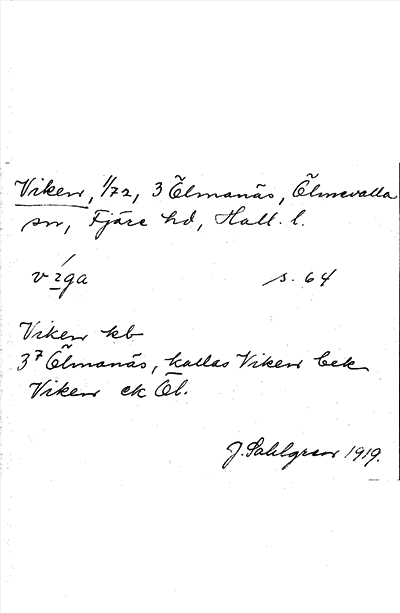 Viken, 1/72, 3 Ölmanäs, Ölmevalla
sn, Fjäre hd, Hall. l.
vi̱ga s. 64
Viken kb
3⁷ Ölmanäs, kallas Viken bek
Viken ek Öl.
J. Sahlgren 1919.